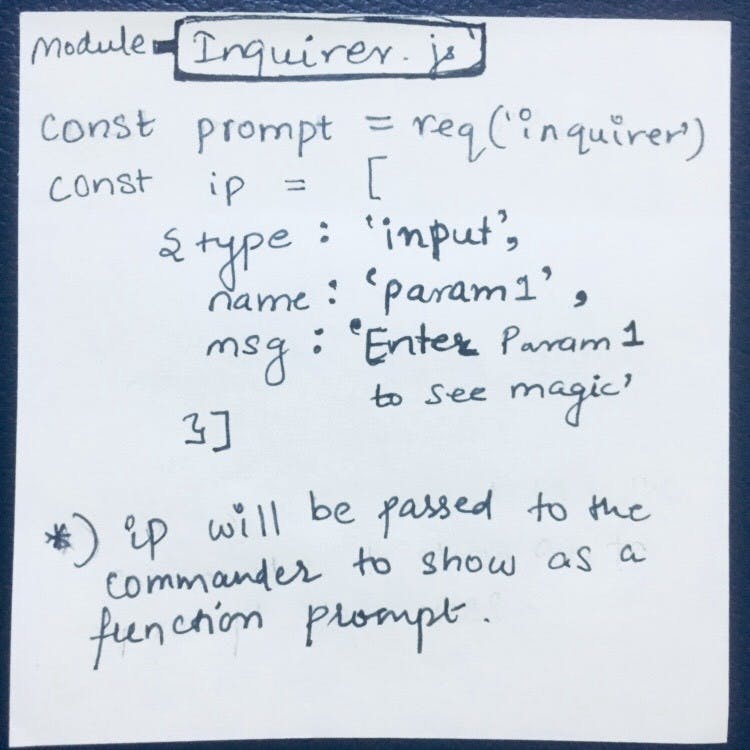 Module - Inquirer.js
const prompt = req('inquirer')
const ip = [
{ type : 'input',
name : 'param1',
msg : 'Enter Param 1
to see magic'
}]
*) ip will be passed to the
commander to show as a
function prompt.